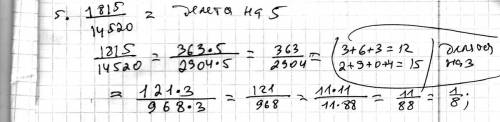 5. 1815/14520 = делим на 5
1815/14520 = 363·5/2904·5 = 363/2904 = (3+6+3=12
2+9+0+4=15) на 3
= 121·3/968·3 = 121/968 = 11·11/11·88 = 11/88 = 1/8;